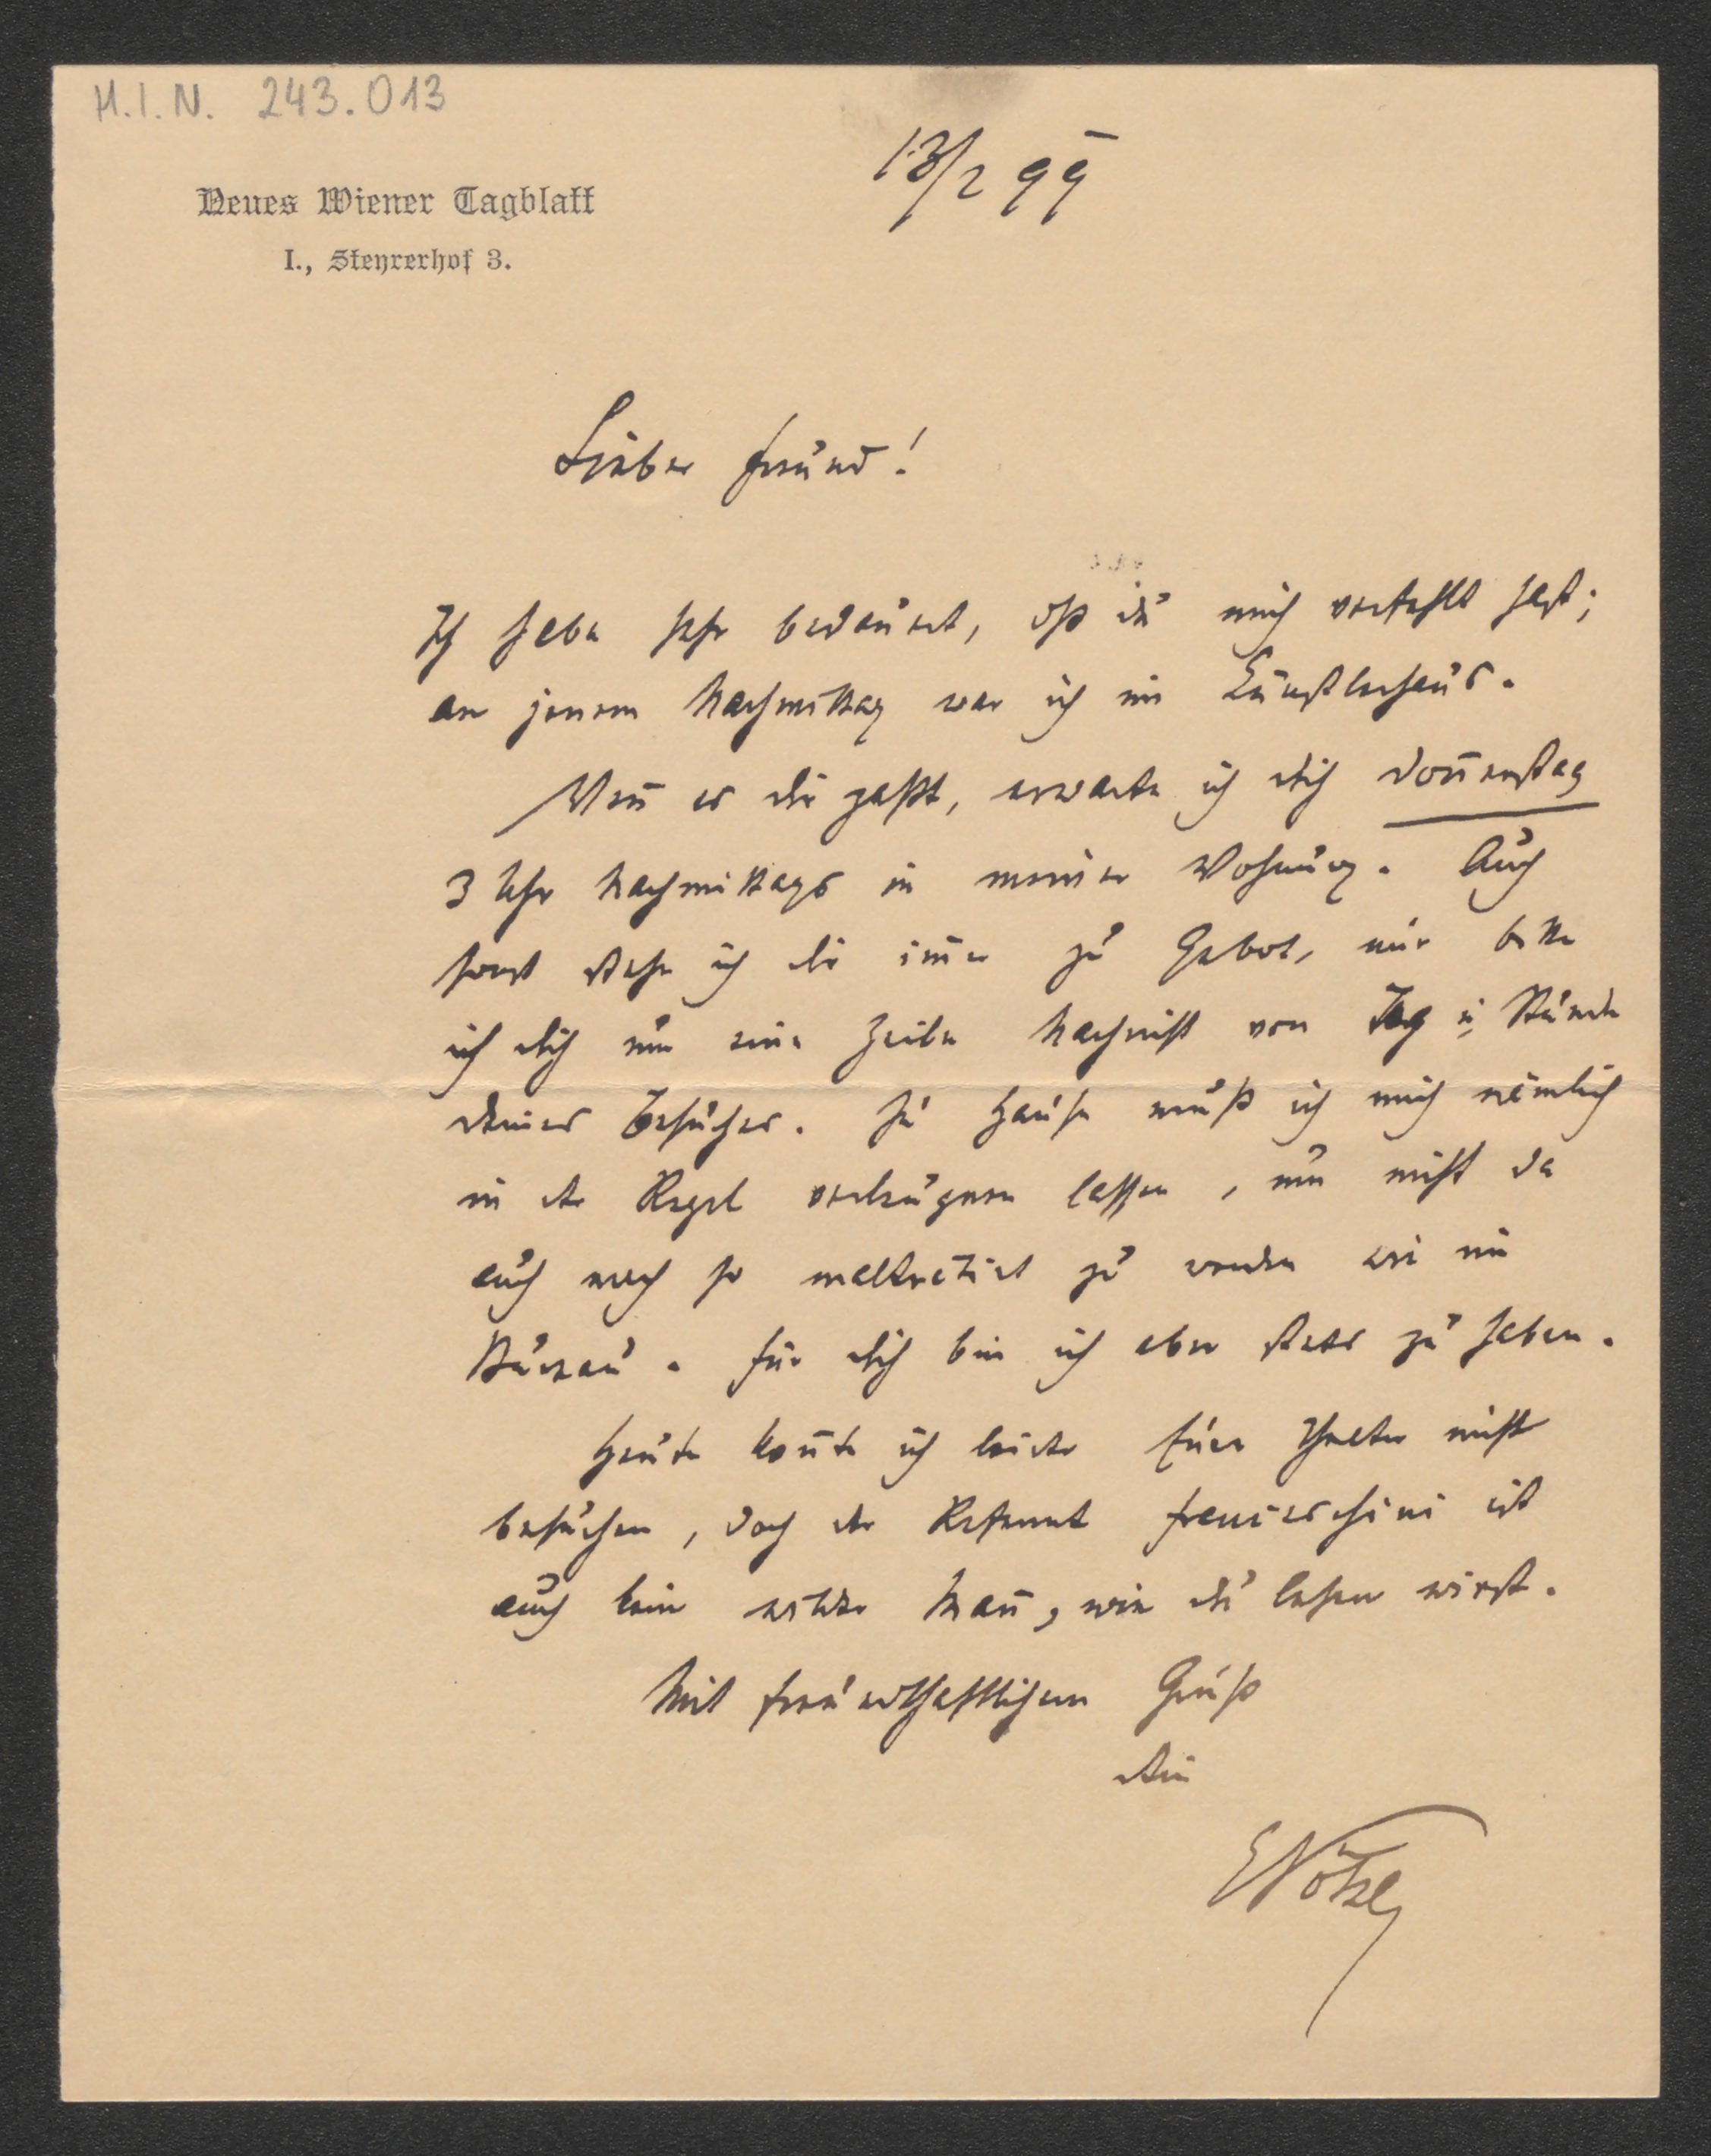 H.I.N. 243.013
13/2 99
Neues Wiener Tagblatt
I., Steyrerhof 3.
Lieber Freund!
Ich habe sehr bedauert, dß du mich verfehlt hast;
an jenem Nachmittag war ich im Künstlerhaus.
Wen̄ es dir paßt, erwarte ich dich Don̄erstag
3 Uhr Nachmittags in meiner Wohnung. Auch
sonst stehe ich dir im̄er zu Gebot, nur bitte
ich dich um eine Zeile Nachricht von Tag u Stunde
deines Besuches. Zu Hause muß ich mich nämlich
in der Regel verleugnen lassen, um nicht da
auch noch so maltretirt zu werden wie im
Bureau. Für dich bin ich aber stets zu haben.
Heute kon̄te ich leider Euer Theater nicht
besuchen, doch der Referent Franceschini ist
auch kein wilder Man̄, wie du lesen wirst.
Mit freundschaftlichem Gruß
dein
EPötzl